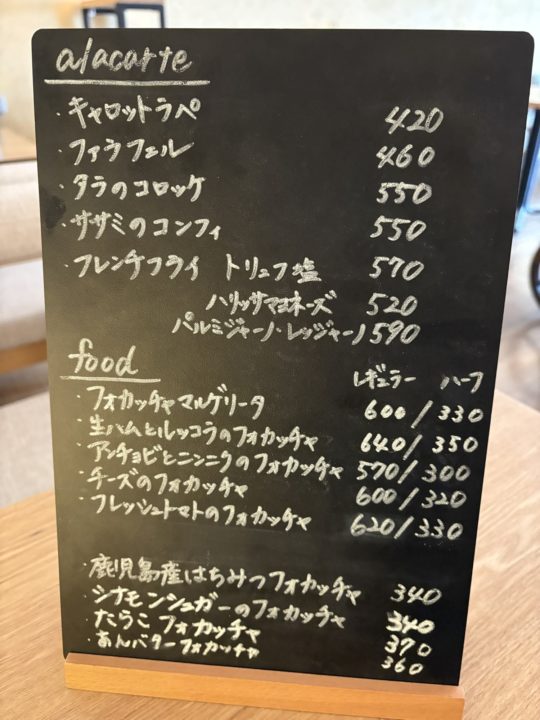 alacarte
・キャロットラペ 420
・ファラフェル 460
・タラのコロッケ 550
・ササミのコンフィ 550
・フレンチフライ トリュフ塩 570
ハリッサマヨネーズ 520
パルミジャーノ・レッジャーノ 590
food レギュラー ハーフ
・フォカッチャマルゲリータ 600/330
・生ハムとルッコラのフォカッチャ 640/350
・アンチョビとニンニクのフォカッチャ 570/300
・チーズのフォカッチャ 600/320
・フレッシュトマトのフォカッチャ 620/330
・鹿児島産はちみつフォカッチャ 340
・シナモンシュガーのフォカッチャ 340
・たらこフォカッチャ 370
・あんバターフォカッチャ 360